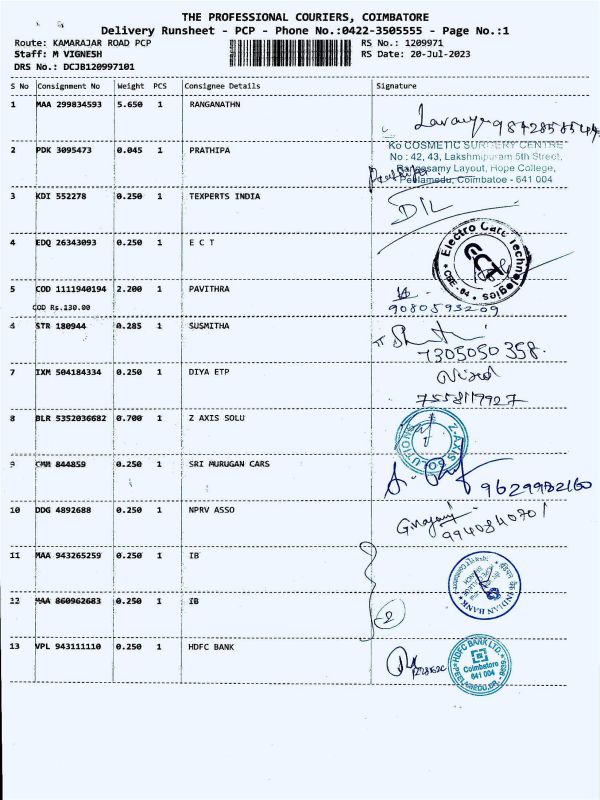 THE PROFESSIONAL COURIERS, COIMBATORE
Delivery Runsheet - PCP - Phone No.:0422-3505555 - Page No.:1
Route: KAMARAJAR ROAD PCP RS No.: 1209971
Staff: M VIGNESH RS Date: 20-Jul-2023
DRS No.: DCJB120997101
S No Consignment No Weight PCS Consignee Details Signature
1 MAA 299834593 5.650 1 RANGANATHN
2 PDK 3095473 0.045 1 PRATHIPA
Ko COSMETIC SURGERY CENTRE
No : 42, 43, Lakshmipuram 5th Street,
Rangasamy Layout, Hope College,
Peelamedu, Coimbatoe - 641 004
3 KDI 552278 0.250 1 TEXPERTS INDIA
4 EDQ 26343093 0.250 1 E C T
Electro Care Technologies
CBE - 04
5 COD 1111940194 2.200 1 PAVITHRA
COD Rs.130.00
9080593209
6 STR 180944 0.285 1 SUSMITHA
7305050 358.
7 IXM 504184334 0.250 1 DIYA ETP
8 BLR 5352036682 0.700 1 Z AXIS SOLU
Z-AXIS SOLUTIONS
9 CMM 844859 0.250 1 SRI MURUGAN CARS
9629982160
10 DDG 4892688 0.250 1 NPRV ASSO
11 MAA 943265259 0.250 1 IB
INDIAN BANK
12 MAA 860962683 0.250 1 IB
2
13 VPL 943111110 0.250 1 HDFC BANK
HDFC BANK LTD.
Coimbatore
641 004
PEELAMEDU BR.